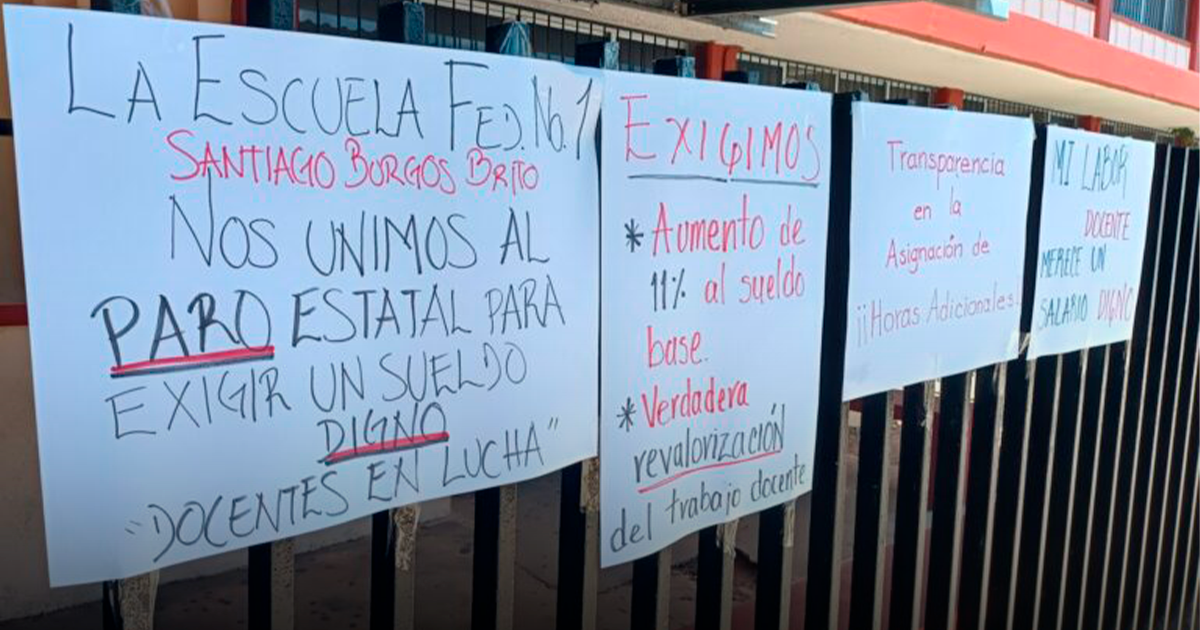 LA ESCUELA FED. No. 1
SANTIAGO BURGOS BRITO
NOS UNIMOS AL
PARO ESTATAL PARA
EXIGIR UN SUELDO
DIGNO
"DOCENTES EN LUCHA"
EXIGIMOS
* Aumento de
11% al sueldo
base.
* Verdadera
revalorización
del trabajo docente
Transparencia
en la
Asignación de
¡¡Horas Adicionales!
MI LABOR
DOCENTE
MERECE UN
SALARIO DIGNO